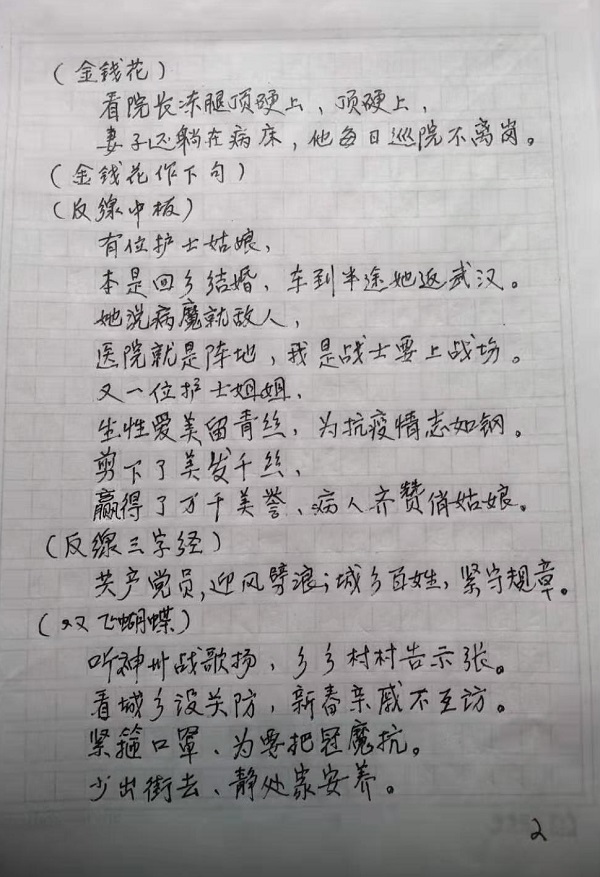 （金钱花）
看院长冻腿顶硬上，顶硬上，
妻子还躺在病床，他每日巡院不离岗。
（金钱花作下句）
（反线中板）
有位护士姑娘，
本是回乡结婚，车到半途她返武汉。
她说病魔就敌人，
医院就是阵地，我是战士要上战场。
又一位护士姐姐，
生性爱美留青丝，为抗疫情志如钢。
剪下了美发千丝，
赢得了万千美誉、病人齐赞俏姑娘。
（反线三字经）
共产党员，迎风劈浪；城乡百姓，紧守规章。
（双飞蝴蝶）
听神州战歌扬，乡乡村村告示张。
看城乡设关防，新春亲戚不互访。
紧箍口罩、为要把冠魔抗。
少出街去、静处家安养。
2